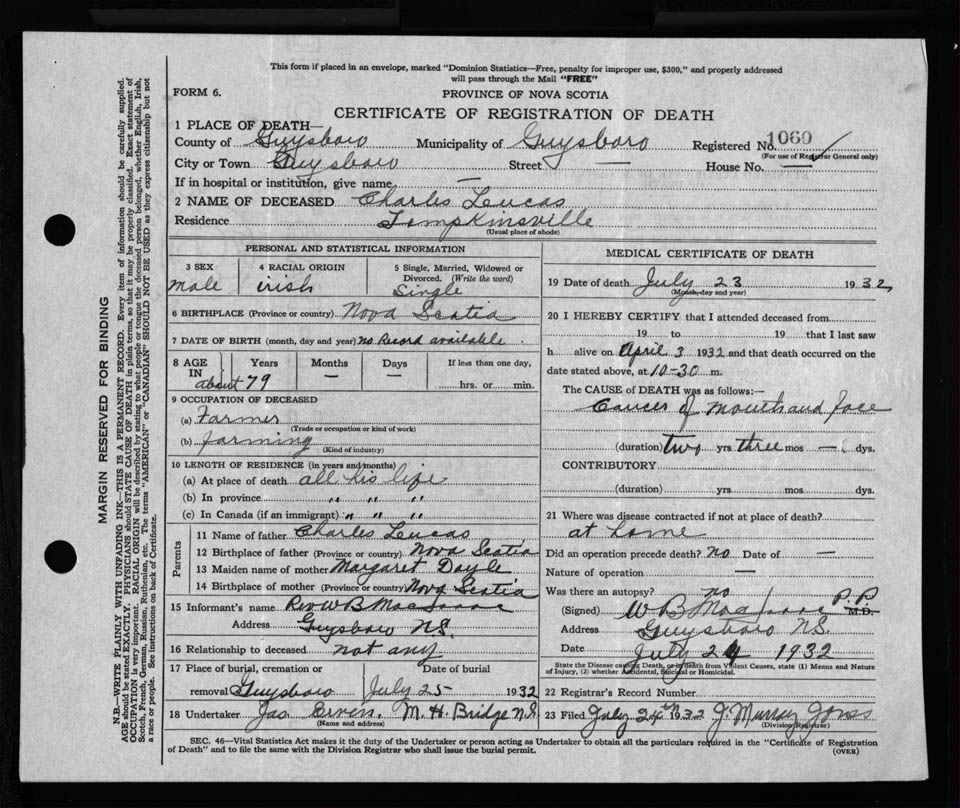 This form if placed in an envelope, marked "Dominion Statistics—Free, penalty for improper use, $300," and properly addressed
will pass through the Mail "FREE"
FORM 6.
PROVINCE OF NOVA SCOTIA
CERTIFICATE OF REGISTRATION OF DEATH
1 PLACE OF DEATH—
County of Guysboro Municipality of Guysboro Registered No. 1060
(For use of Registrar General only)
City or Town Guysboro Street — House No. —
If in hospital or institution, give name —
2 NAME OF DECEASED Charles Lucas
Residence Tompkinsville
(Usual place of abode)
PERSONAL AND STATISTICAL INFORMATION
3 SEX 4 RACIAL ORIGIN 5 Single, Married, Widowed or
Divorced. (Write the word)
male irish Single
6 BIRTHPLACE (Province or country) Nova Scotia
7 DATE OF BIRTH (month, day and year) no Record available
8 AGE IN Years Months Days If less than one day,
about 79 — — hrs. or min.
9 OCCUPATION OF DECEASED
(a) Farmer
(Trade or occupation or kind of work)
(b) farming
(Kind of industry)
10 LENGTH OF RESIDENCE (in years and months)
(a) At place of death all his life
(b) In province " " "
(c) In Canada (if an immigrant) " " "
Parents
11 Name of father Charles Lucas
12 Birthplace of father (Province or country) Nova Scotia
13 Maiden name of mother Margaret Doyle
14 Birthplace of mother (Province or country) Nova Scotia
15 Informant's name Rev W B MacIsaac
Address Guysboro N.S.
16 Relationship to deceased not any
17 Place of burial, cremation or Date of burial
removal Guysboro July 25 1932
18 Undertaker Jas M. H. Bridge N.S.
(Name and address)
MEDICAL CERTIFICATE OF DEATH
19 Date of death July 23 1932
(Month, day and year)
20 I HEREBY CERTIFY that I attended deceased from
19 to 19 that I last saw
h alive on April 3 1932 and that death occurred on the
date stated above, at 10-30 m.
The CAUSE OF DEATH was as follows:—
Cancer of mouth and face
(duration) two yrs three mos — dys.
CONTRIBUTORY
(duration) yrs mos dys.
21 Where was disease contracted if not at place of death?
at home
Did an operation precede death? no Date of —
Nature of operation —
Was there an autopsy? no
(Signed) W B MacIsaac P.P M.D.
Address Guysboro N.S.
Date July 24 1932
State the Disease causing Death, or in death from Violent Causes, state (1) Means and Nature
of Injury, (2) whether Accidental, Suicidal or Homicidal.
22 Registrar's Record Number
23 Filed July 24th 1932 J. Murray Jones
(Division Registrar)
SEC. 46—Vital Statistics Act makes it the duty of the Undertaker or person acting as Undertaker to obtain all the particulars required in the "Certificate of Registration
of Death" and to file the same with the Division Registrar who shall issue the burial permit.
MARGIN RESERVED FOR BINDING
N.B.—WRITE PLAINLY WITH UNFADING INK—THIS IS A PERMANENT RECORD. Every item of information should be carefully supplied.
AGE should be stated EXACTLY. PHYSICIANS should STATE CAUSE OF DEATH in plain terms, so that it may be properly classified. Exact statement of
OCCUPATION is very important. RACIAL ORIGIN will be described by stating to what people or tongue the deceased person belonged, whether English, Irish,
Scotch, French, German, Russian, Ruthenian, etc. The terms "AMERICAN" or "CANADIAN" SHOULD NOT BE USED as they express citizenship but not
a race or people. See instructions on back of Certificate.